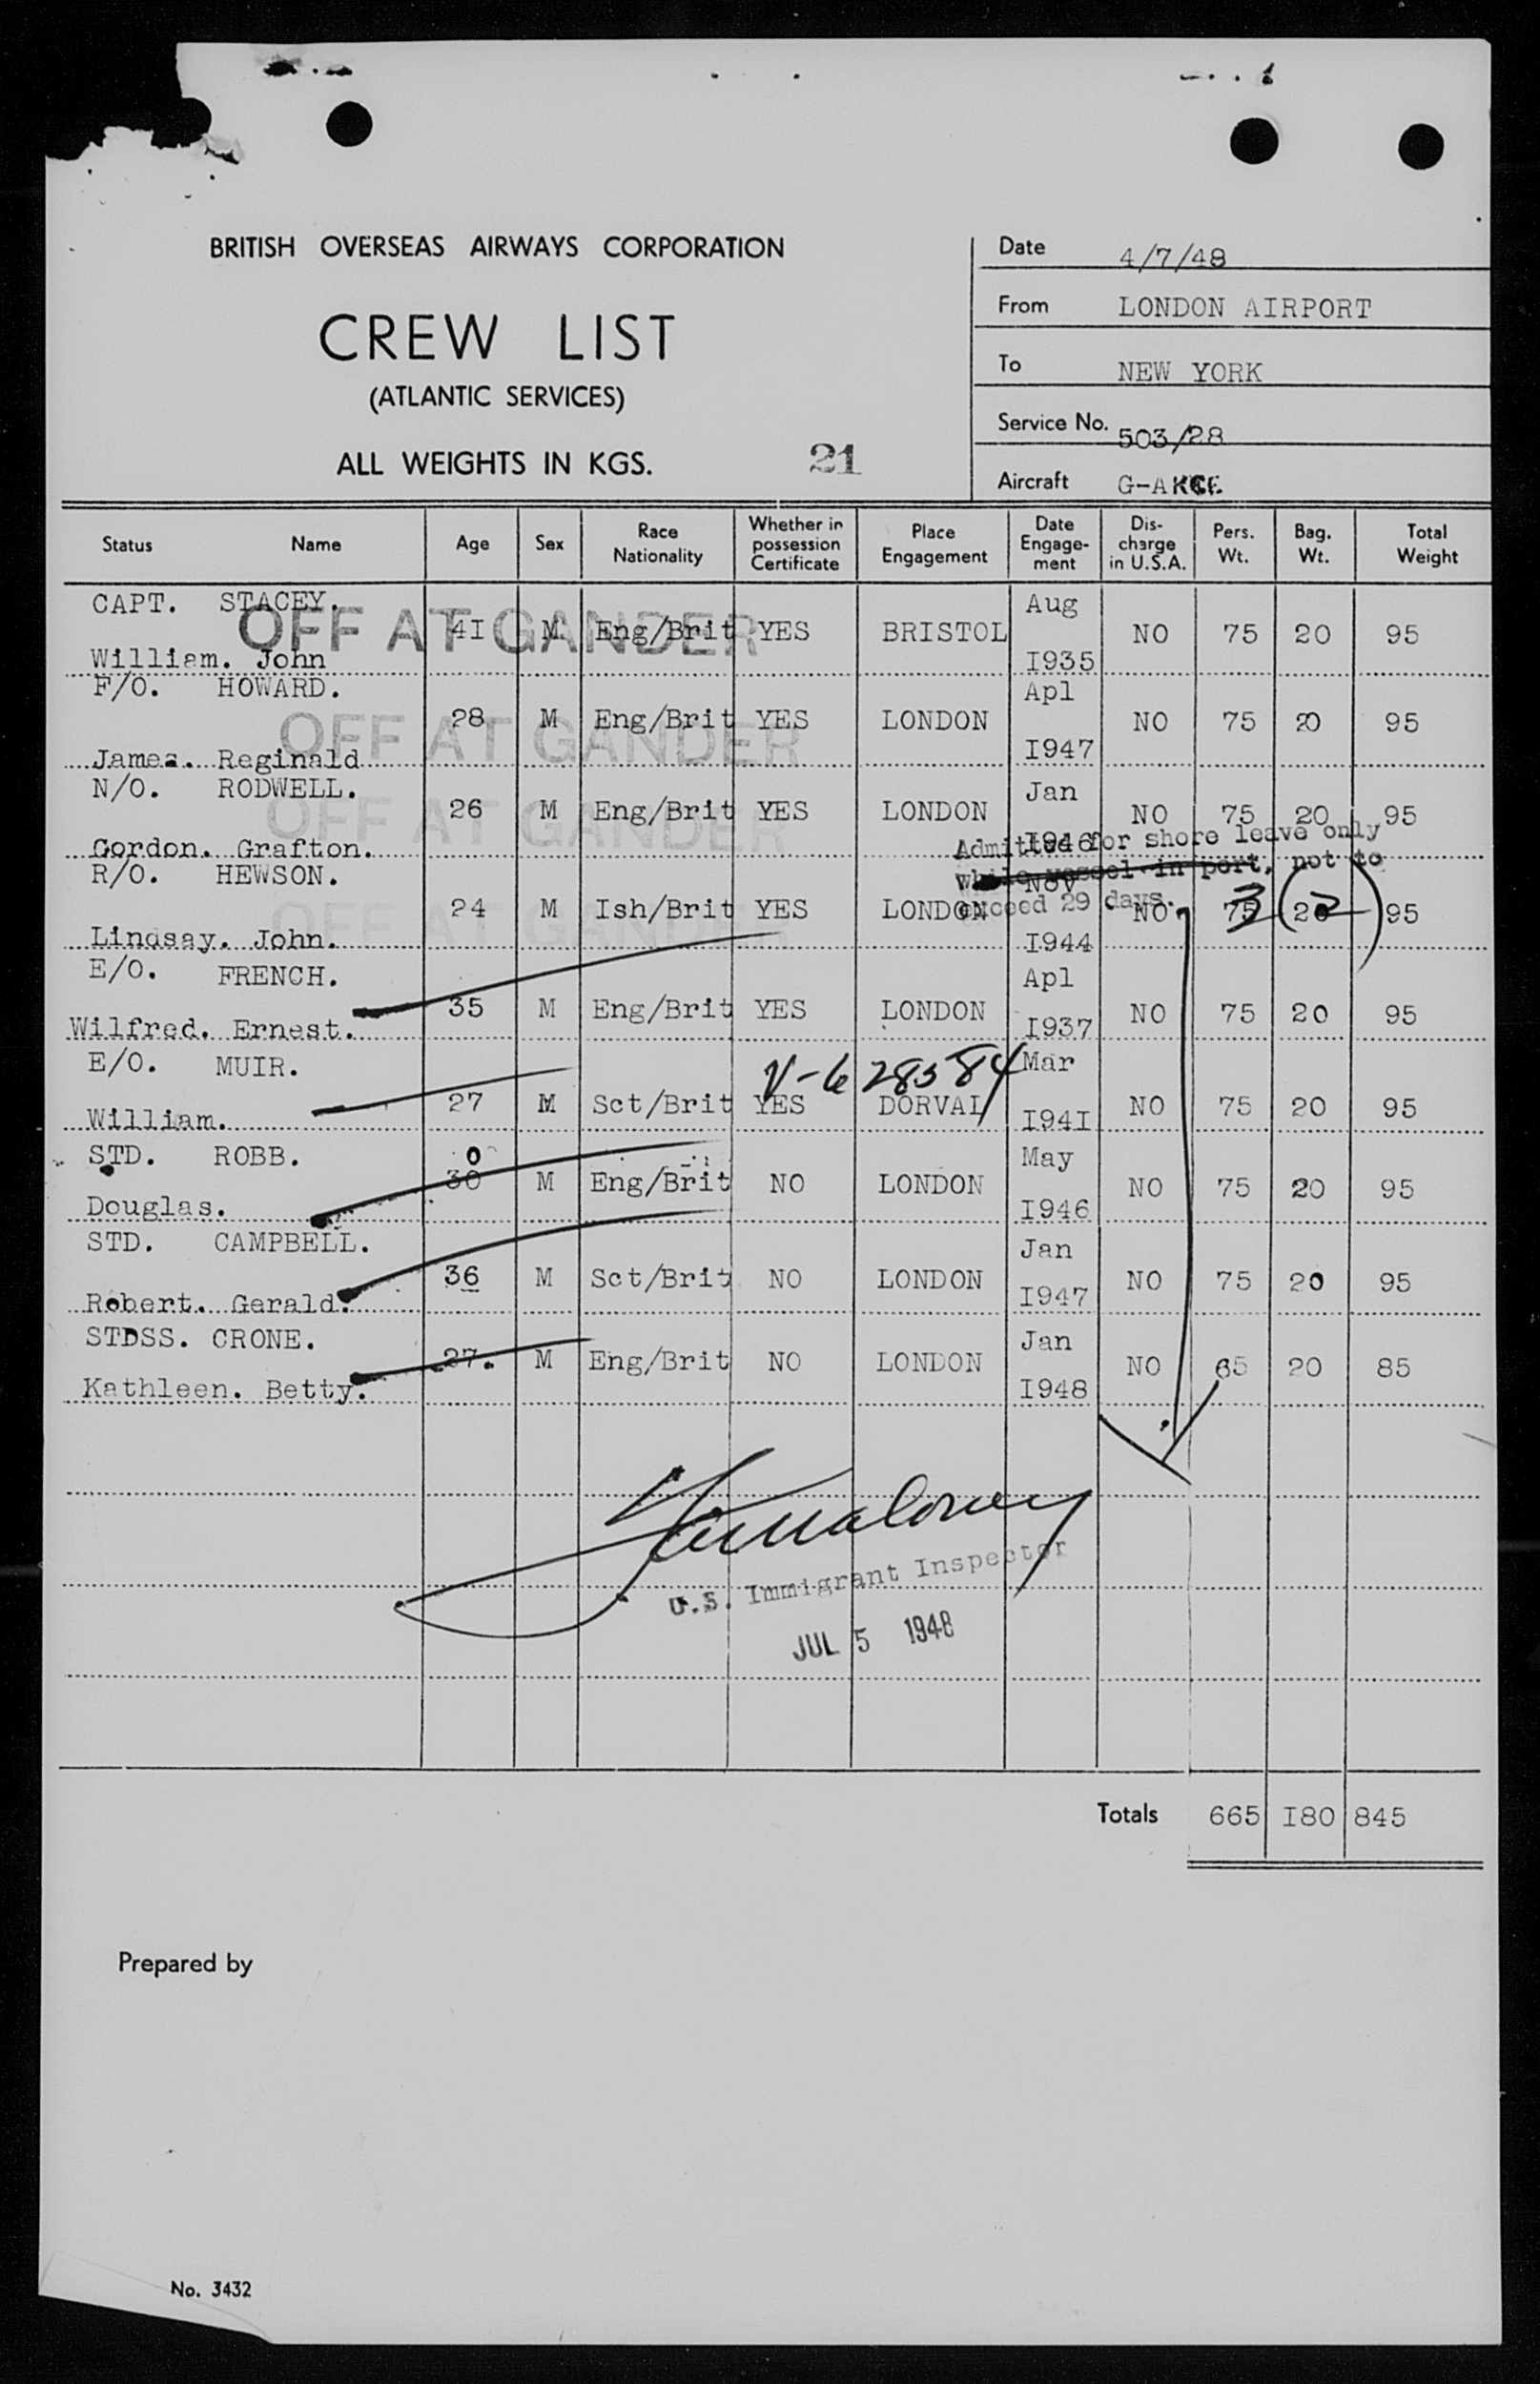 BRITISH OVERSEAS AIRWAYS CORPORATION
CREW LIST
(ATLANTIC SERVICES)
ALL WEIGHTS IN KGS.
21
Date 4/7/48
From LONDON AIRPORT
To NEW YORK
Service No. 503/28
Aircraft G-AKCE
Status Name Age Sex Race Nationality Whether in possession Certificate Place Engagement Date Engage-ment Dis-charge in U.S.A. Pers. Wt. Bag. Wt. Total Weight
CAPT. STACEY. Aug
OFF AT GANDER
4I M Eng/Brit YES BRISTOL NO 75 20 95
William. John I935
F/O. HOWARD. Apl
28 M Eng/Brit YES LONDON NO 75 20 95
OFF AT GANDER
James. Reginald I947
N/O. RODWELL. Jan
26 M Eng/Brit YES LONDON NO 75 20 95
OFF AT GANDER
Gordon. Grafton. I946
Admitted for shore leave only
while vessel in port, not to
exceed 29 days.
R/O. HEWSON. Nov
24 M Ish/Brit YES LONDON NO 75 20 95
3 (2)
OFF AT GANDER
Lindsay. John. I944
E/O. FRENCH. Apl
35 M Eng/Brit YES LONDON NO 75 20 95
Wilfred. Ernest. I937
E/O. MUIR. Mar
V-628584
27 M Sct/Brit YES DORVAL NO 75 20 95
William. I94I
STD. ROBB. May
30 M Eng/Brit NO LONDON NO 75 20 95
Douglas. I946
STD. CAMPBELL. Jan
36 M Sct/Brit NO LONDON NO 75 20 95
Robert. Gerald. I947
STDSS. CRONE. Jan
27. M Eng/Brit NO LONDON NO 65 20 85
Kathleen. Betty. I948
U.S. Immigrant Inspector
JUL 5 1948
Totals 665 I80 845
Prepared by
No. 3432